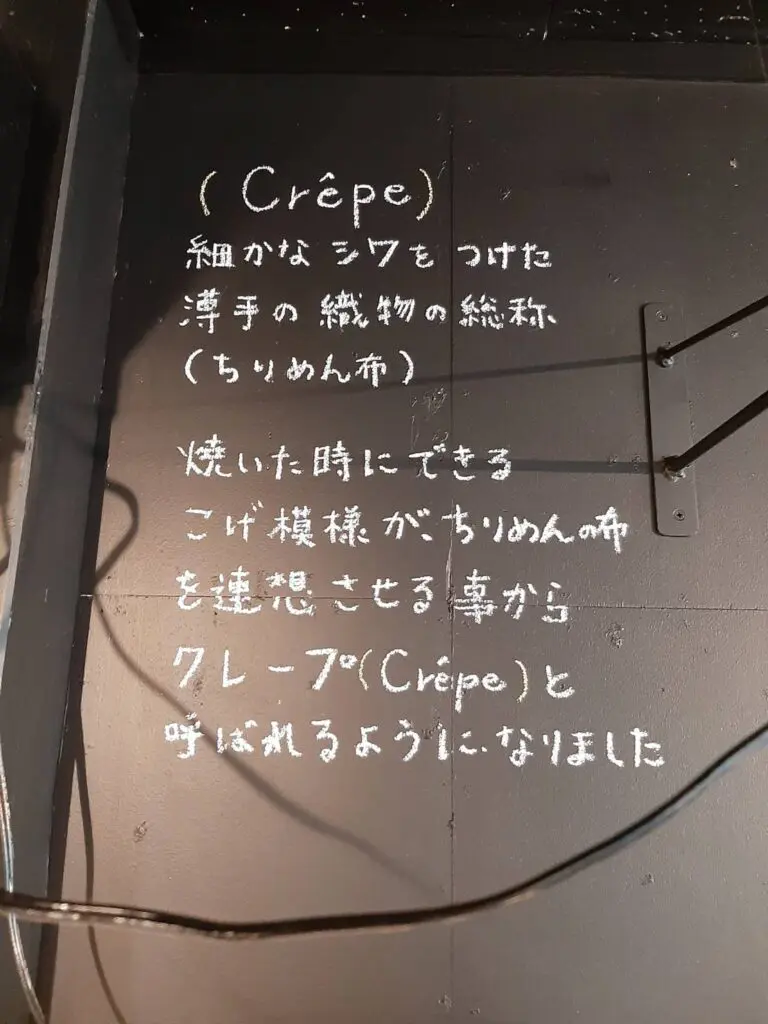 (Crêpe)
細かなシワをつけた
薄手の織物の総称
(ちりめん布)
焼いた時にできる
こげ模様が、ちりめんの布
を連想させる事から
クレープ(Crêpe)と
呼ばれるようになりました